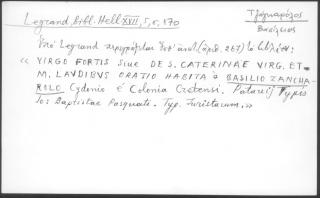 Legrand, bibl. Hell XXII, 5, σ, 170
Τζαγκαρόλος
Βασίλειος
Ὑπὸ Legrand περιγράφεται ὑπ' ἀριθ. 267) τὸ βιβλίον:
« VIRGO FORTIS Siue DE S. CATERINAE VIRG. ET
M. LAVDIBVS ORATIO HABITA à BASILIO ZANCHA-
ROLO Cydonio è Colonia Cretensi. Patavij Typis
Io: Baptistae Pasquati. Typ. Turistarum. »